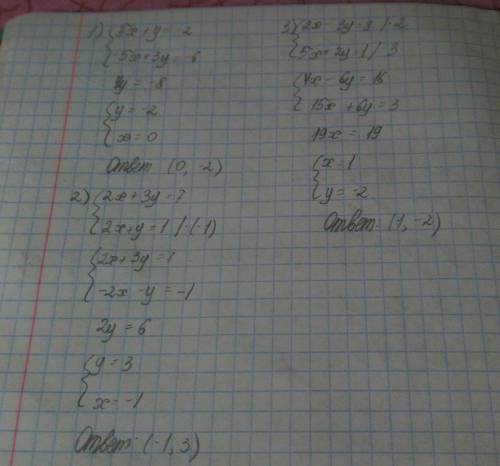 1) { 5x + y = 2
-5x + 3y = -6
4y = -8
{ y = -2
x = 0
Ответ (0, -2)
2) { 2x + 3y = 7
2x + y = 1 /·(-1)
{ 2x + 3y = 7
-2x - y = -1
2y = 6
{ y = 3
x = -1
Ответ: (-1, 3)
3) { 2x - 3y = 8 /·2
5x + 2y = 1 /·3
{ 4x - 6y = 16
15x + 6y = 3
19x = 19
{ x = 1
y = -2
Ответ: (1, -2)